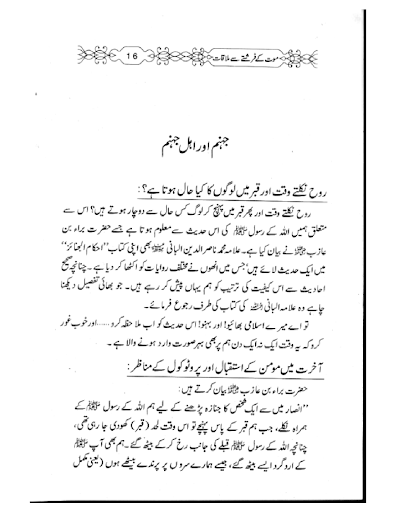 موت کے فرشتے سے ملاقات 16
جہنم اور اہل جہنم
روح نکلتے وقت اور قبر میں لوگوں کا کیا حال ہوتا ہے؟:
روح نکلتے وقت اور پھر قبر میں پہنچ کر لوگ کس حال سے دوچار ہوتے ہیں؟ اس سے
متعلق ہمیں اللہ کے رسول ﷺ کی اس حدیث سے معلوم ہوتا ہے جسے حضرت براء بن
عازب نے بیان کیا ہے۔ علامہ محمد ناصر الدین البانی بھی اپنی کتاب "احکام الجنائز"
میں ایک حدیث لائے ہیں جس میں انھوں نے مختلف روایات کو اکٹھا کر دیا ہے۔ چنانچہ صحیح
احادیث سے اس کیفیت کی ترتیب کو ہم یہاں پیش کر رہے ہیں۔ جو بھائی تفصیل دیکھنا
چاہے وہ علامہ البانی کی کتاب کی طرف رجوع فرمائے۔
تو اے میرے اسلامی بھائیو! اور بہنو! اس حدیث کو اب ملاحظہ کرو ...... اور خوب غور
کرو کہ یہ وقت ایک نہ ایک دن ہم پر بھی بہر صورت وارد ہونے والا ہے۔
آخرت میں مومن کے استقبال اور پروٹوکول کے مناظر:
حضرت براء بن عازب بیان کرتے ہیں:
"انصار میں سے ایک شخص کا جنازہ پڑھنے کے لیے ہم اللہ کے رسول ﷺ کے
ہمراہ نکلے، جب ہم قبر کے پاس پہنچے تو اس وقت لحد (قبر) کھودی جا رہی تھی،
چنانچہ اللہ کے رسول ﷺ قبلے کی جانب رخ کر کے بیٹھ گئے۔ ہم بھی آپ ﷺ
کے ارد گرد ایسے بیٹھ گئے، جیسے ہمارے سروں پر پرندے بیٹھے ہوں (یعنی مکمل